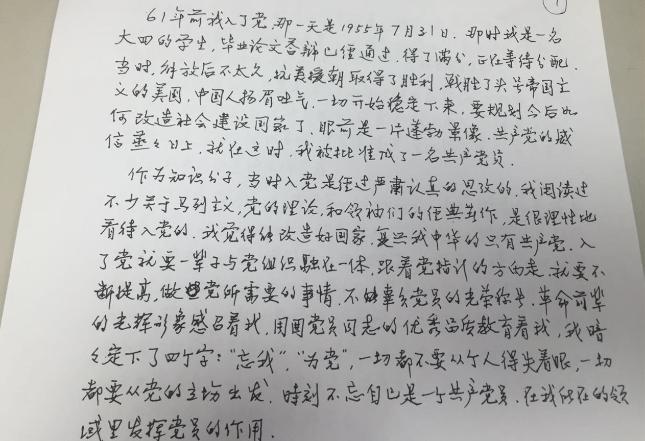 1
61年前我入了党,那一天是1955年7月31日.那时我是一名
大四的学生,毕业论文答辩已经通过,得了满分,正在等待分配.
当时,解放后不太久,抗美援朝取得了胜利,战胜了头号帝国主
义的美国,中国人扬眉吐气,一切开始稳定下来,要规划今后如
何改造社会建设国家了,眼前是一片蓬勃景像.共产党的威
信蒸蒸日上,就在这时,我被批准成了一名共产党员.
作为知识分子,当时入党是经过严肃认真的思考的,我阅读过
不少关于马列主义,党的理论,和领袖们的经典著作,是很理性地
看待入党的.我觉得能改造好国家,复兴我中华的只有共产党.入
了党就要一辈子与党组织融在一体,跟着党指引的方向走.就要不
断提高,做党所需要的事情.不能辜负党员的光荣称号,革命前辈
的光辉形象感召着我,周围党员同志的优秀品质教育着我,我暗
々定下了四个字:"忘我","为党",一切都不要从个人得失着眼,一切
都要从党的立场出发.时刻不忘自己是一个共产党员.在我所在的领
域里发挥党员的作用.